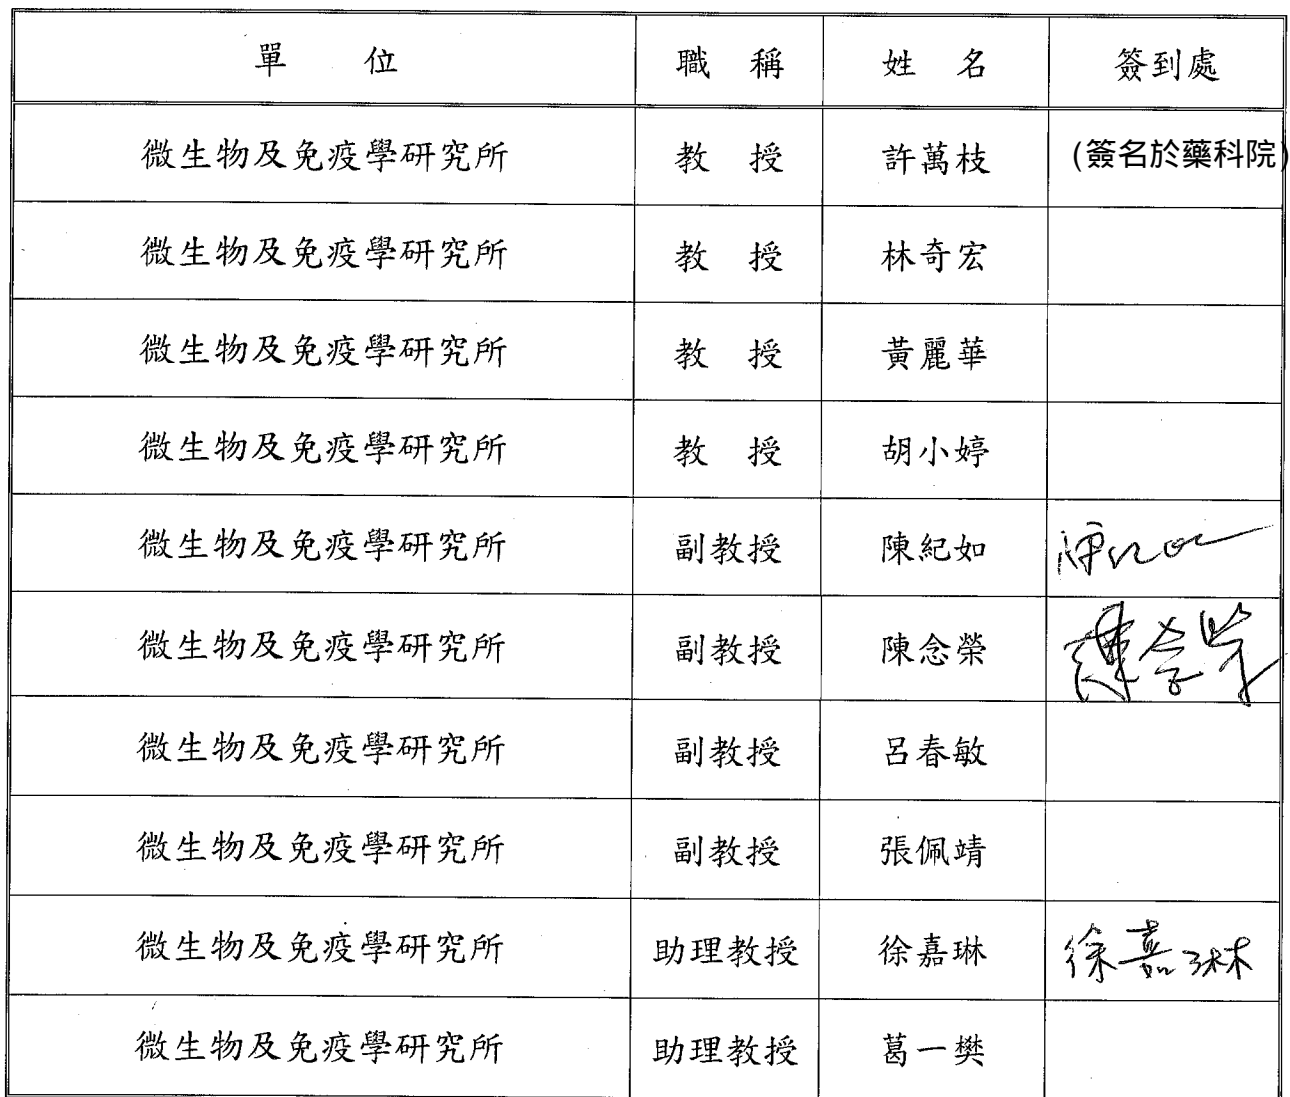 單 位 職 稱 姓 名 簽到處
微生物及免疫學研究所 教 授 許萬枝 (簽名於藥科院)
微生物及免疫學研究所 教 授 林奇宏
微生物及免疫學研究所 教 授 黃麗華
微生物及免疫學研究所 教 授 胡小婷
微生物及免疫學研究所 副教授 陳紀如 陳紀如
微生物及免疫學研究所 副教授 陳念榮 陳念榮
微生物及免疫學研究所 副教授 呂春敏
微生物及免疫學研究所 副教授 張佩靖
微生物及免疫學研究所 助理教授 徐嘉琳 徐嘉琳
微生物及免疫學研究所 助理教授 葛一樊